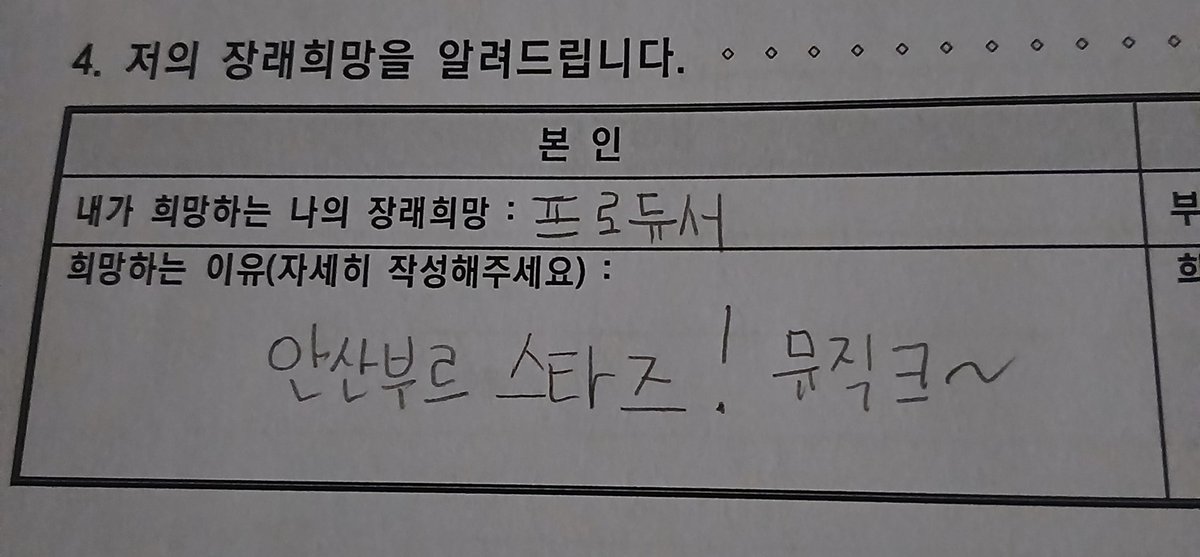 4. 저의 장래희망을 알려드립니다. ⋄ ⋄ ⋄ ⋄ ⋄ ⋄ ⋄ ⋄ ⋄ ⋄ ⋄
본 인
내가 희망하는 나의 장래희망 : 프로듀서
부
희망하는 이유(자세히 작성해주세요) :
희
안산부르 스타즈! 뮤직크~